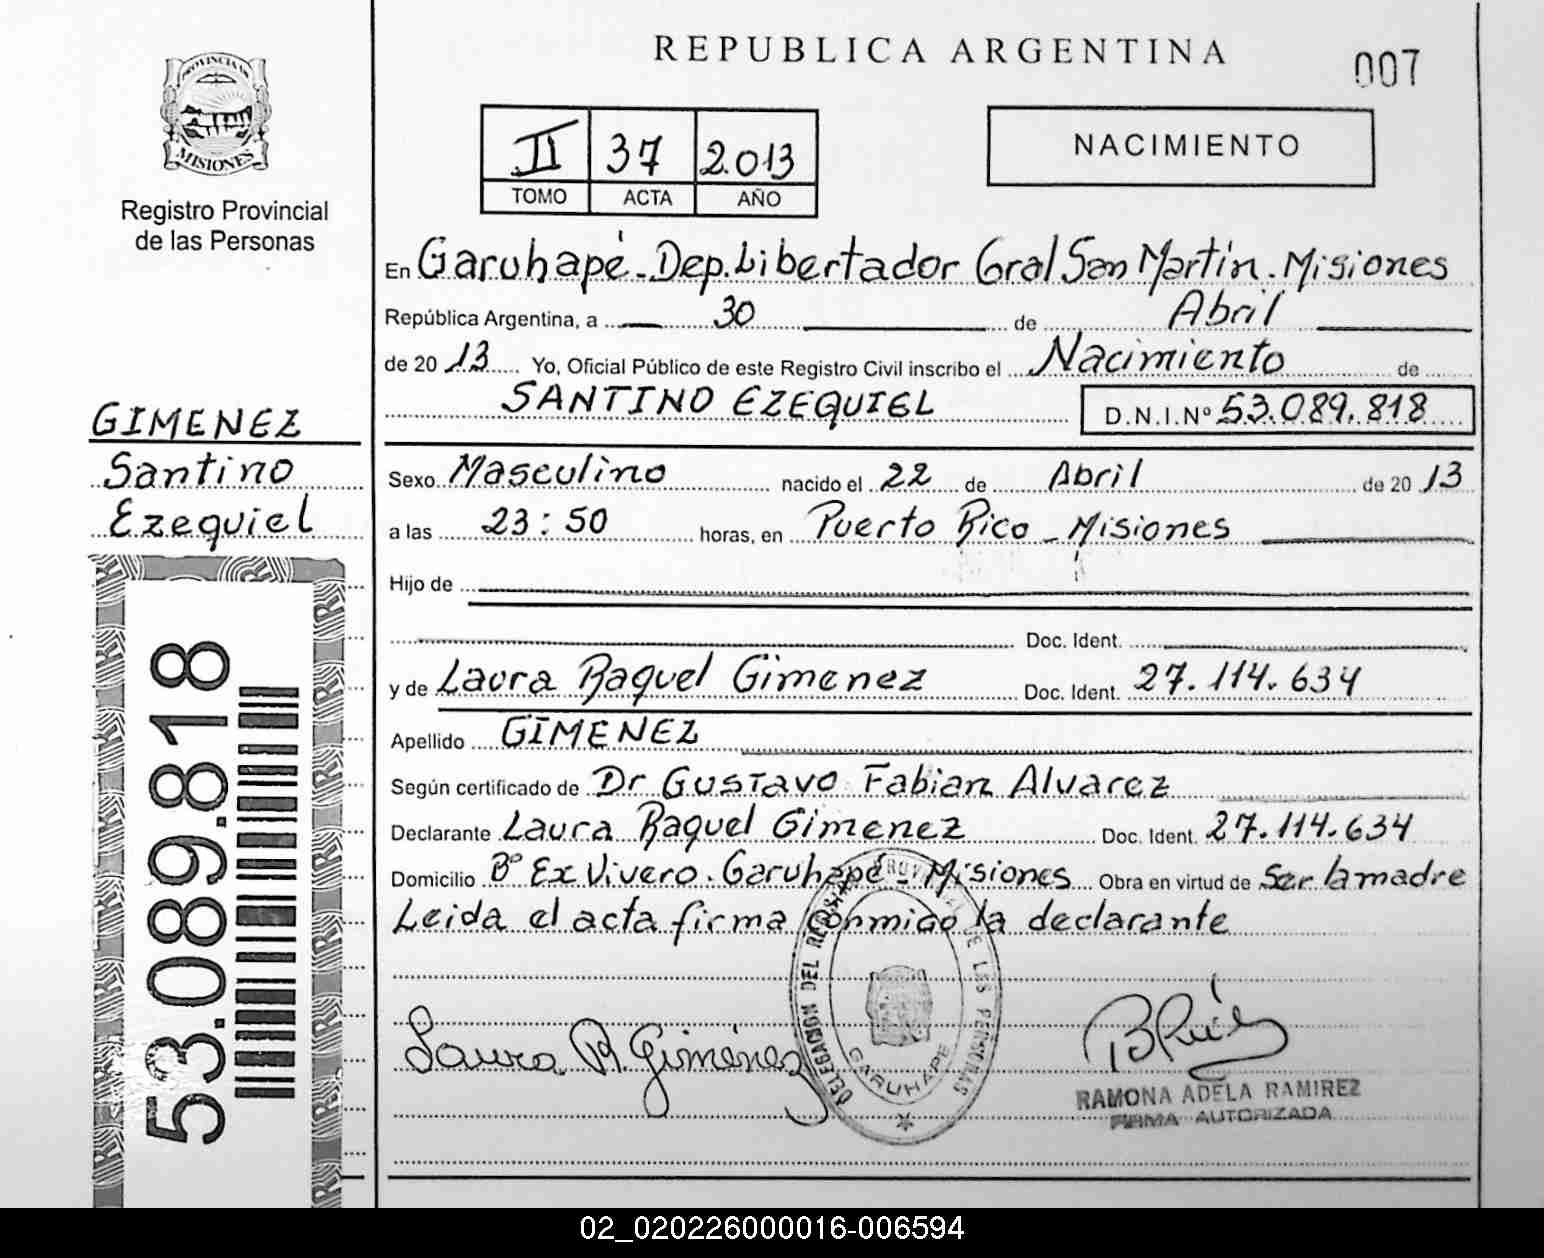 REPUBLICA ARGENTINA
007
PROVINCIA DE
MISIONES
Registro Provincial
de las Personas
II 37 2.013
TOMO ACTA AÑO
NACIMIENTO
En Garuhapé - Dep. Libertador Gral San Martín. Misiones
República Argentina, a 30 de Abril
de 20 13 Yo, Oficial Público de este Registro Civil inscribo el Nacimiento de
SANTINO EZEQUIEL D.N.I.Nº 53.089.818
GIMENEZ
Santino
Ezequiel
53.089.818
Sexo Masculino nacido el 22 de Abril de 20 13
a las 23:50 horas, en Puerto Rico - Misiones
Hijo de
Doc. Ident.
y de Laura Raquel Gimenez Doc. Ident. 27.114.634
Apellido GIMENEZ
Según certificado de Dr Gustavo Fabian Alvarez
Declarante Laura Raquel Gimenez Doc. Ident. 27.114.634
Domicilio Bº Ex Vivero. Garuhapé - Misiones Obra en virtud de Ser la madre
Leida el acta firma conmigo la declarante
Laura R. Giménez
DELEGACION DEL REGISTRO PROVINCIAL DE LAS PERSONAS
GARUHAPE
RAMONA ADELA RAMIREZ
FIRMA AUTORIZADA
02_020226000016-006594